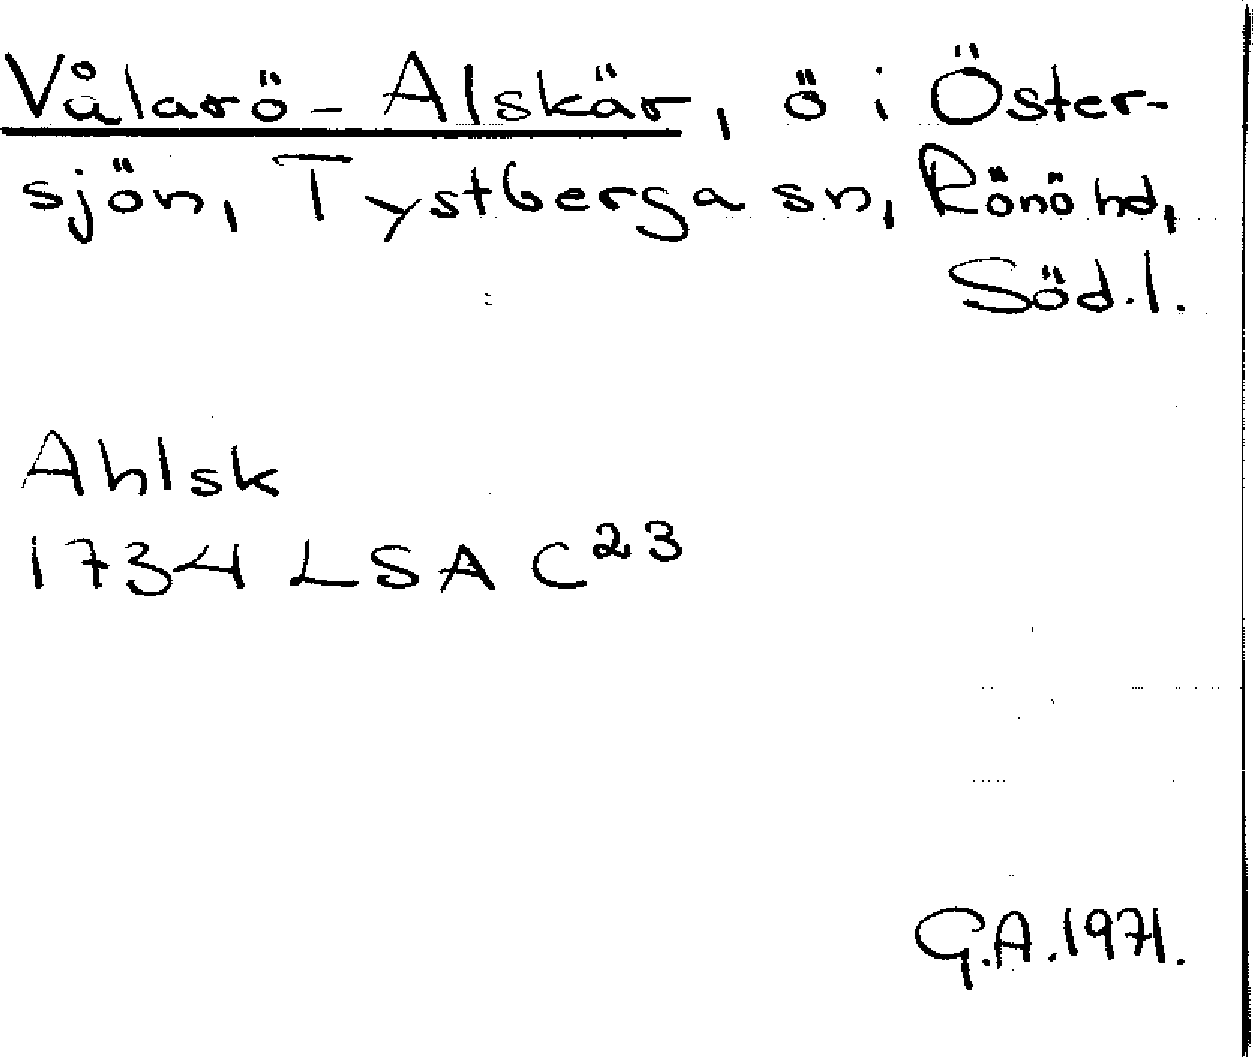 Vålarö - Alskär, ö i Öster-
sjön, Tystberga sn, Rönö hd,
Söd.l.
Ahlsk
1734 LSA C²³
G.A. 1971.